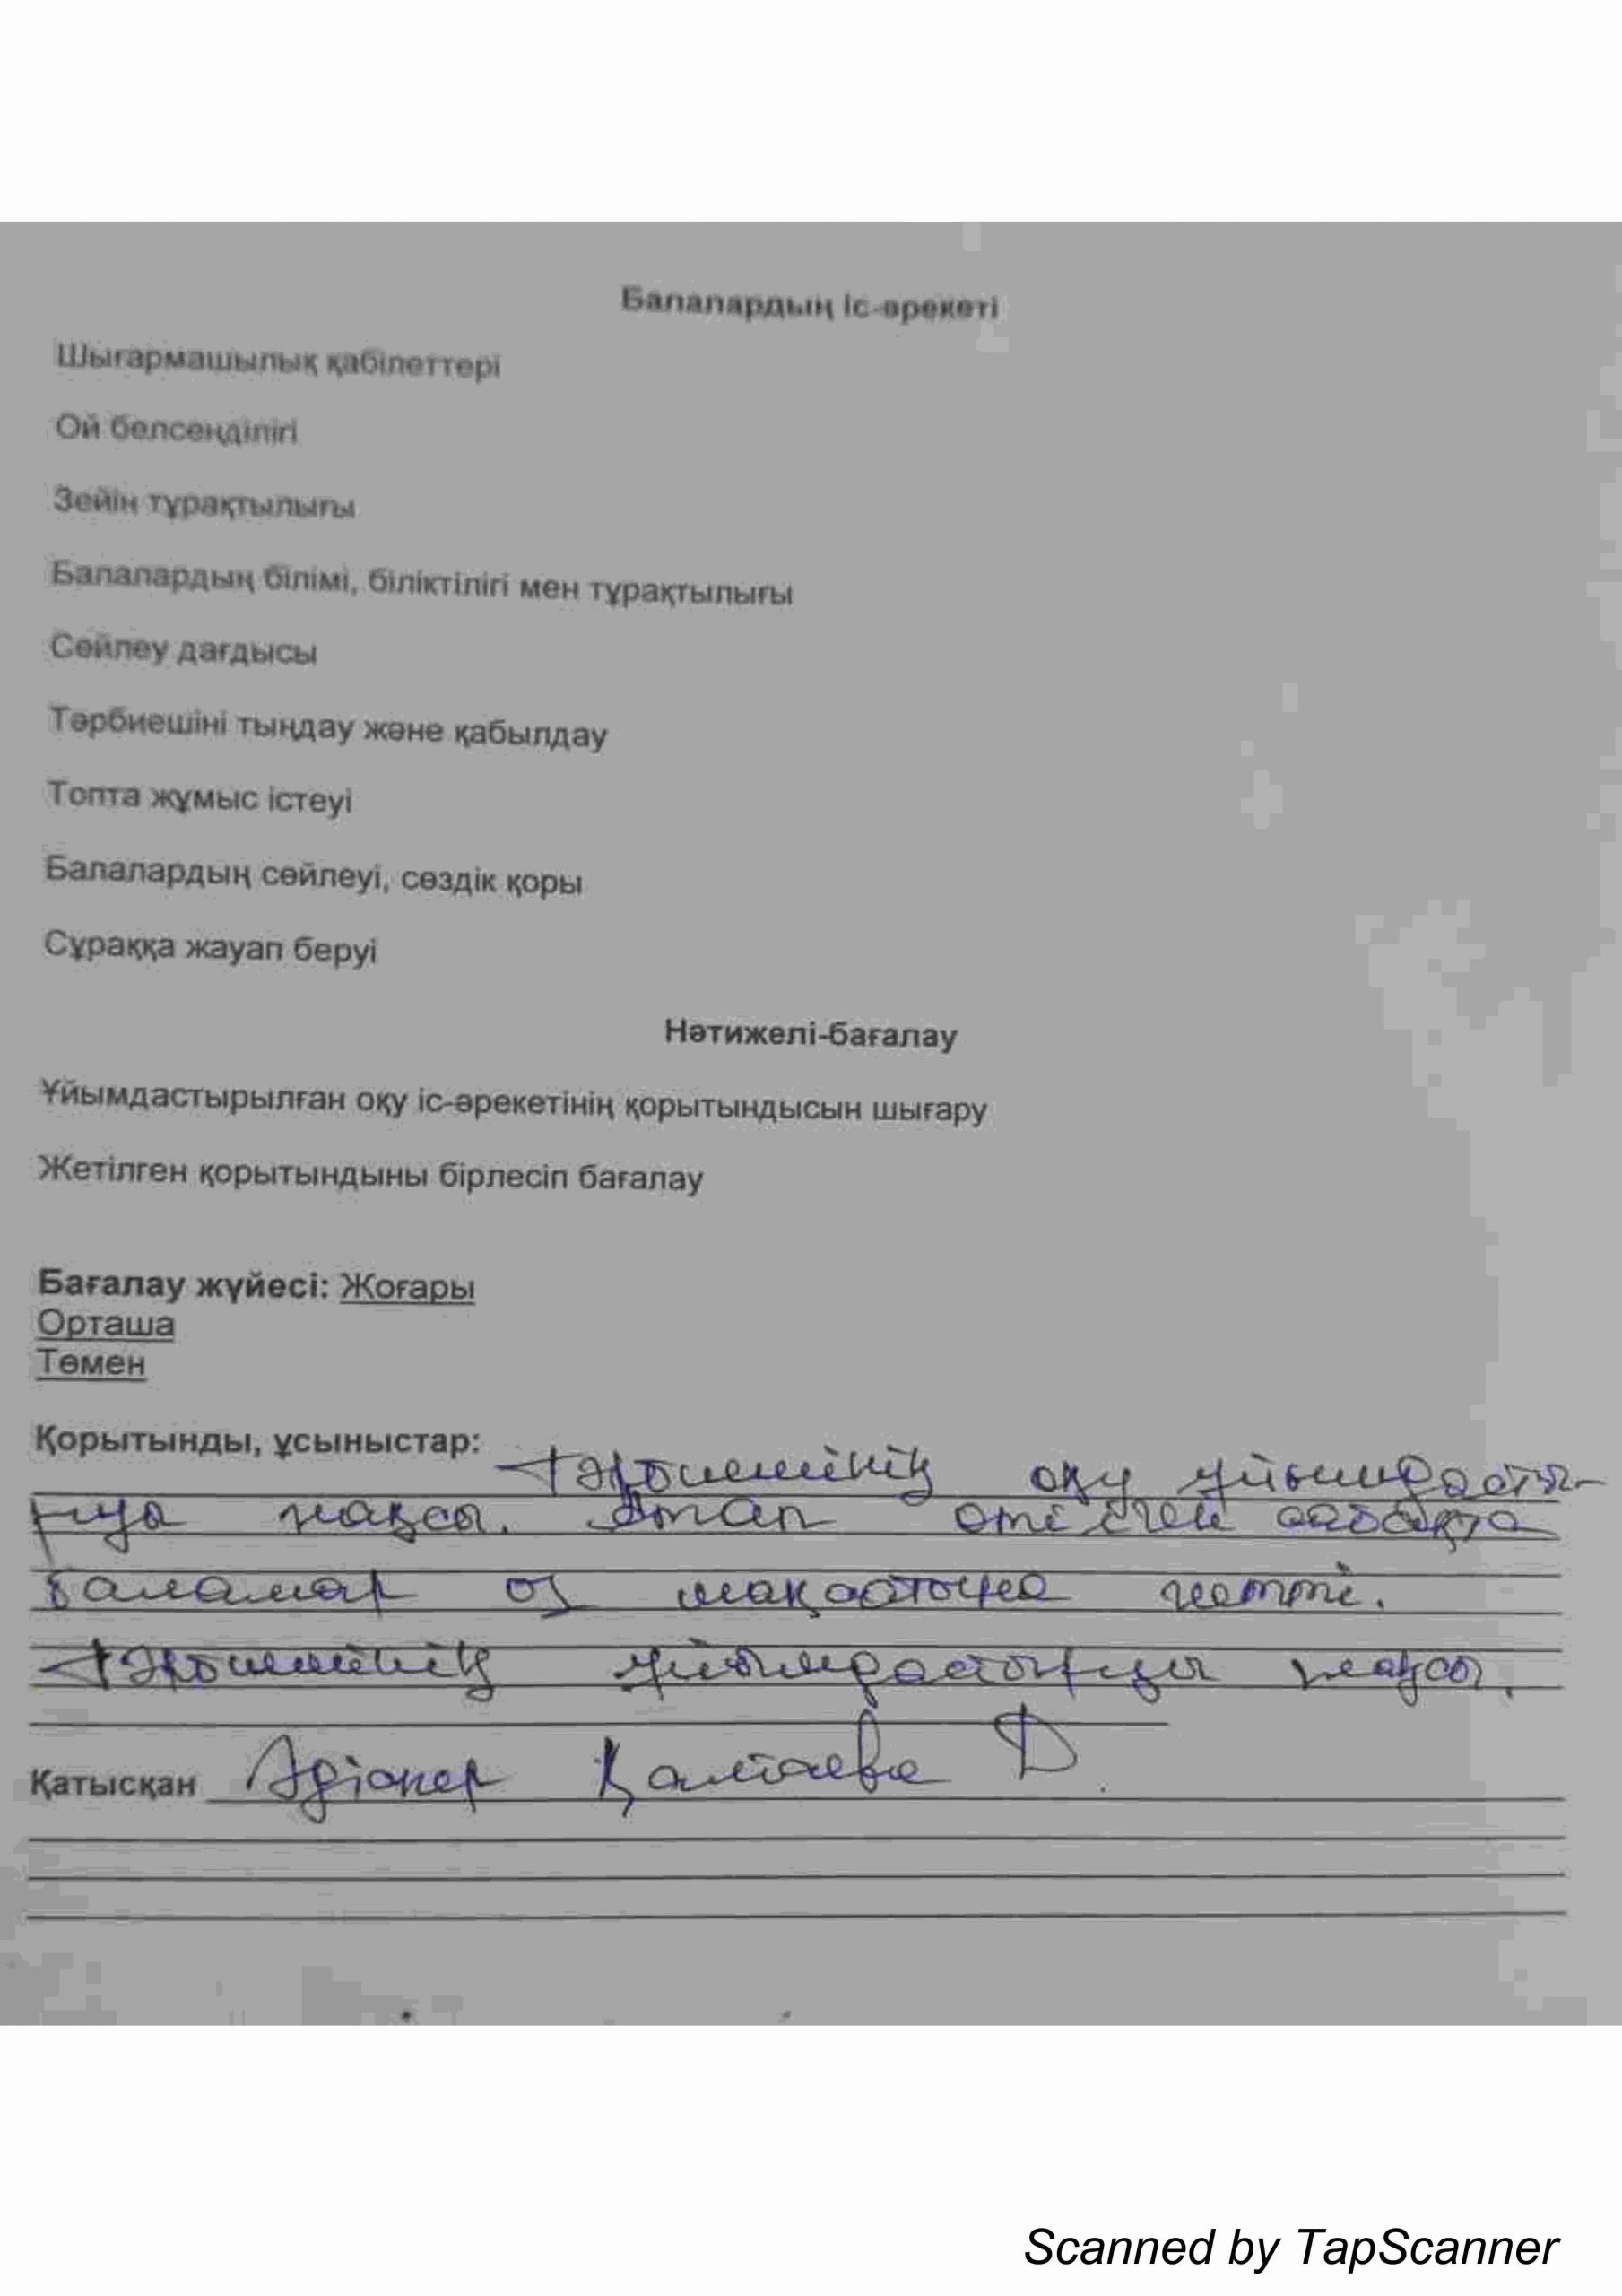 Балалардың іс-әрекеті
Шығармашылық қабілеттері
Ой белсеңділігі
Зейін тұрақтылығы
Балалардың білімі, біліктілігі мен тұрақтылығы
Сөйлеу дағдысы
Тәрбиешіні тыңдау және қабылдау
Топта жұмыс істеуі
Балалардың сөйлеуі, сөздік қоры
Сұраққа жауап беруі
Нәтижелі-бағалау
Ұйымдастырылған оқу іс-әрекетінің қорытындысын шығару
Жетілген қорытындыны бірлесіп бағалау
Бағалау жүйесі: Жоғары
Орташа
Төмен
Қорытынды, ұсыныстар: Тәрбиешінің оқу ұйымдасты-
руы жақсы. Өтілген сабақта
балалар өз мақсатына жетті.
Тәрбиешінің ұйымдастыруы жақсы.
Қатысқан Әдіскер Қ Д.
Scanned by TapScanner